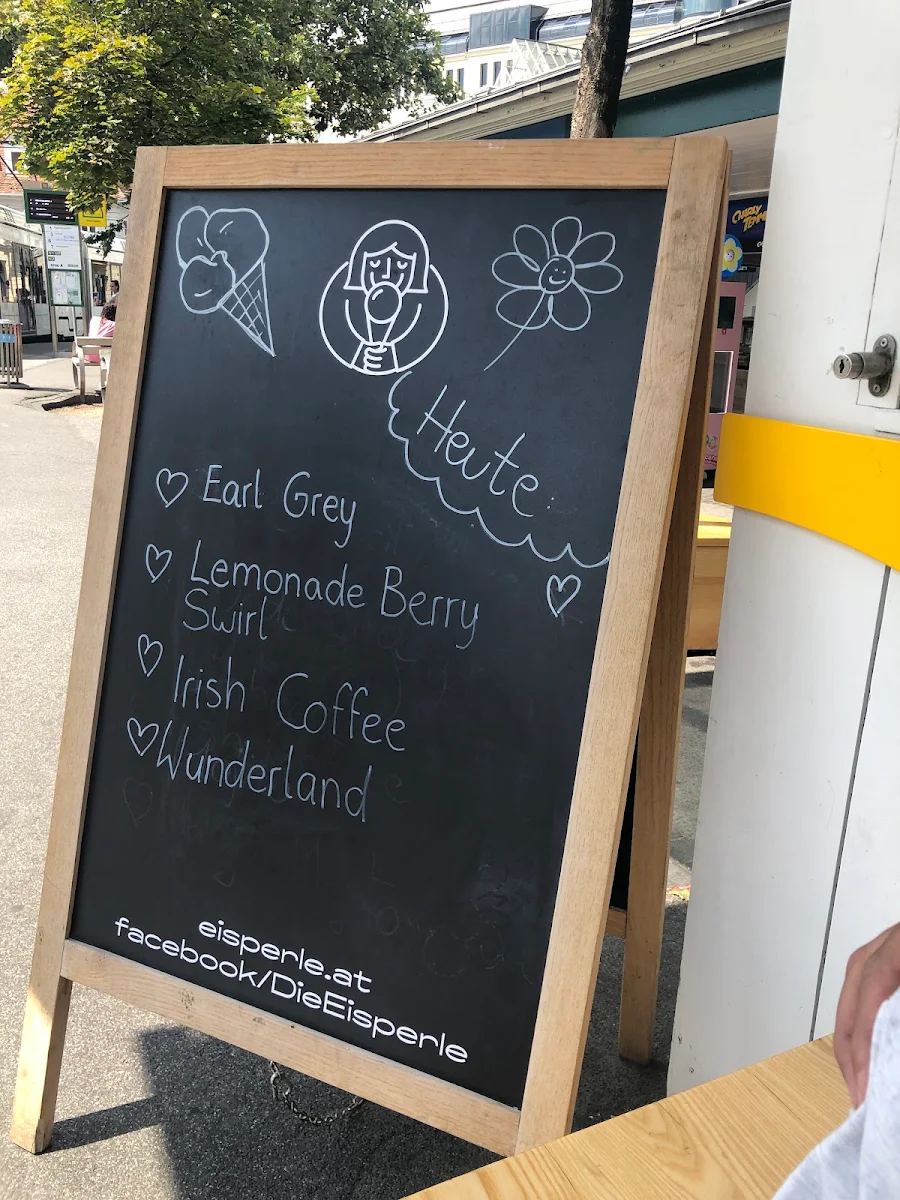 Heute:
Earl Grey
Lemonade Berry
Swirl
Irish Coffee
Wunderland
eisperle.at
facebook/DieEisperle